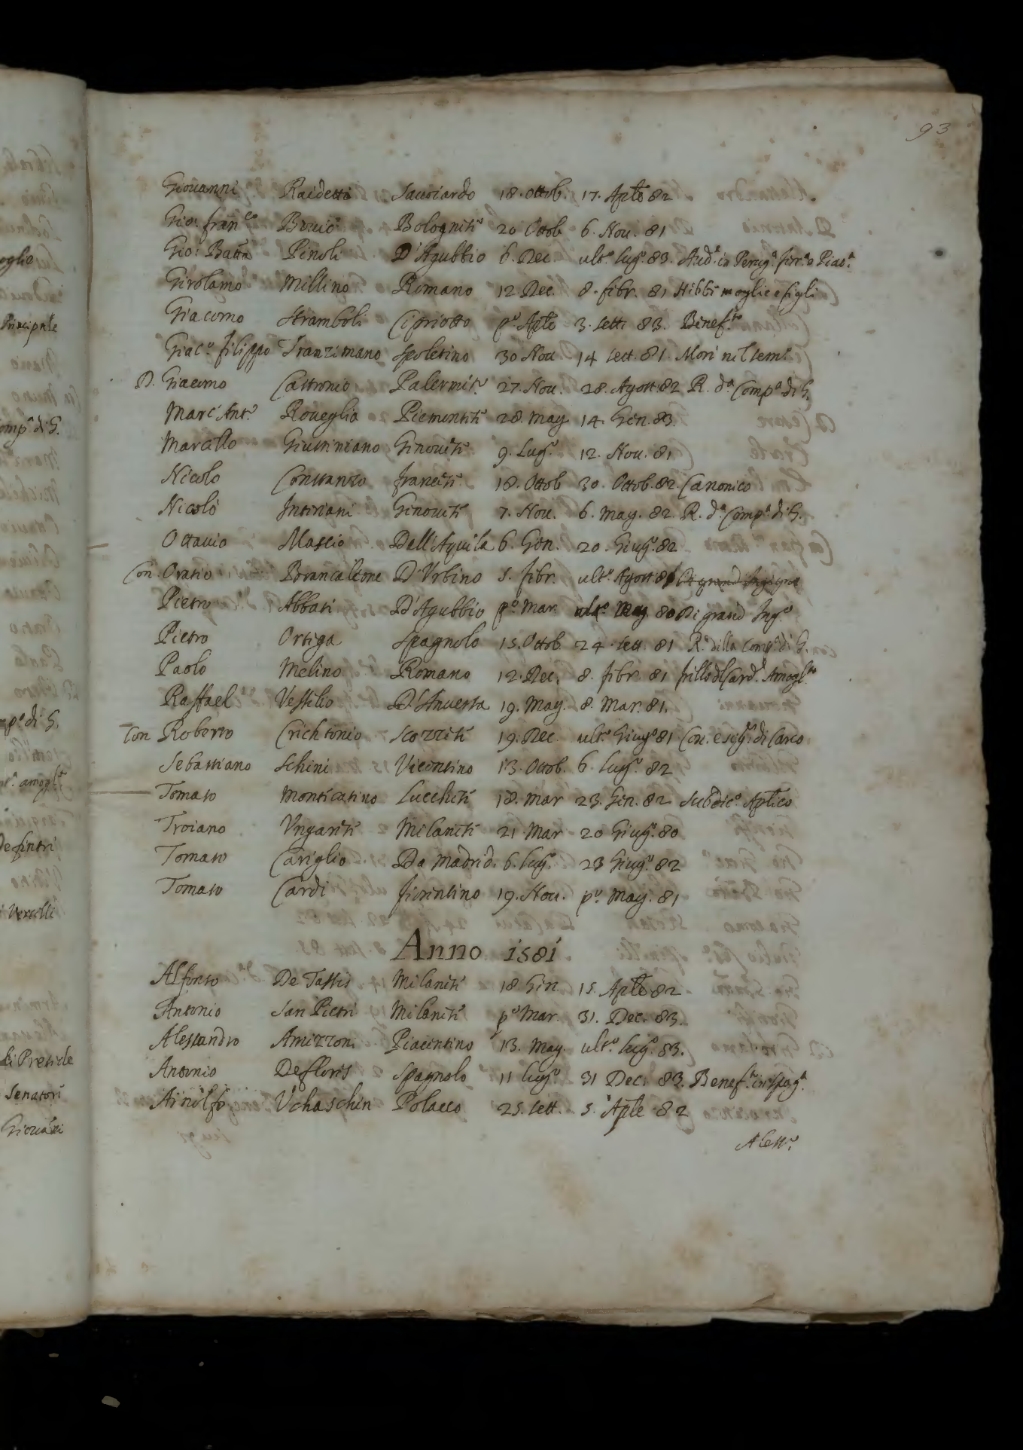 93
Giovanni Raidetti Sauoiardo 18. Ottob. 17. Aple 82
Gio: fran.co Bouio Bolognese 20 Ottob 6. Nou. 81
Gio: Batta Penoli D'Agubbio 6. Dec ult.o lug.o 83.
Girolamo Mellino Romano 12 Dec. 8. febr. 81 Hebbe moglie e figli
Giacomo Stramboli Cipriotto p.o Aple 3. sett. 83. Benef.to
Giac.o filippo Transimano Spoletino 30 Nou 14 sett. 81. Morì nel sem.o
D. Giacomo Castronio Palermit.o 27. Nou. 28. Agost 82 R. d.a Comp.a di G.
Marc'Ant.o Roueglia Piemontese 28. may. 14. Gen. 83
Marcello Giustiniano Genouese 9. Lug.o 12. Nou. 81
Nicolo Constanzo francese 18. Ottob 30. Ottob. 82 Canonico
Nicolò Interiani Genouese 7. Nou. 6. may. 82 R. d.a Comp.a di G.
Ottauio Massio Dell'Aquila 6. Gen. 20. Giug.o 82
Con Oratio Brancaleone D'Vrbino 5. febr. ult.o Agost 81 Di grand Ingegno
Pietro Abbati D'Agubbio p.o Mar. ult.o may 80 Di grand' Ing.o
Pietro Ortiga Spagnolo 15. Ottob 24. sett 81 R.e della Comp.a di G.
Paolo Melino Romano 12. Dec. 8. febr. 81 frello di Card.e Amogl.to
Raffael Vestilio D'Anuersa 19. May. 8. Mar. 81.
Con Roberto Crichtonio Scozzese 19. Dec ult.o Giug.o 81 Con. e sig.r di Carco
Sebastiano Schini Vicentino 13. Ottob. 6. lug.o 82
Tomaso Montecatino Lucchese 18. mar 23. Gen. 82 Aplico
Troiano Vngarese Milanese 21 Mar 20 Giug.o 80
Tomaso Cariglio Da Madrid. 6. lug.o 23 Giug.o 82
Tomaso Cardi fiorentino 19. Nou. p.o May. 81
Anno 1581
Alfonso De Tassis Milanese 18 Gen 15 Aple 82
Antonio San Pietri Milanese p.o Mar 31. Dec. 83.
Alessandro Amezzoni Piacentino 13. May ult.o lug.o 83.
Antonio Deflores Spagnolo 11 lug.o 31 Dec. 83. Benef.to in spag.a
Ainolfo Vchaschin Polacco 25. sett. 5. Aple 82
Aless.o